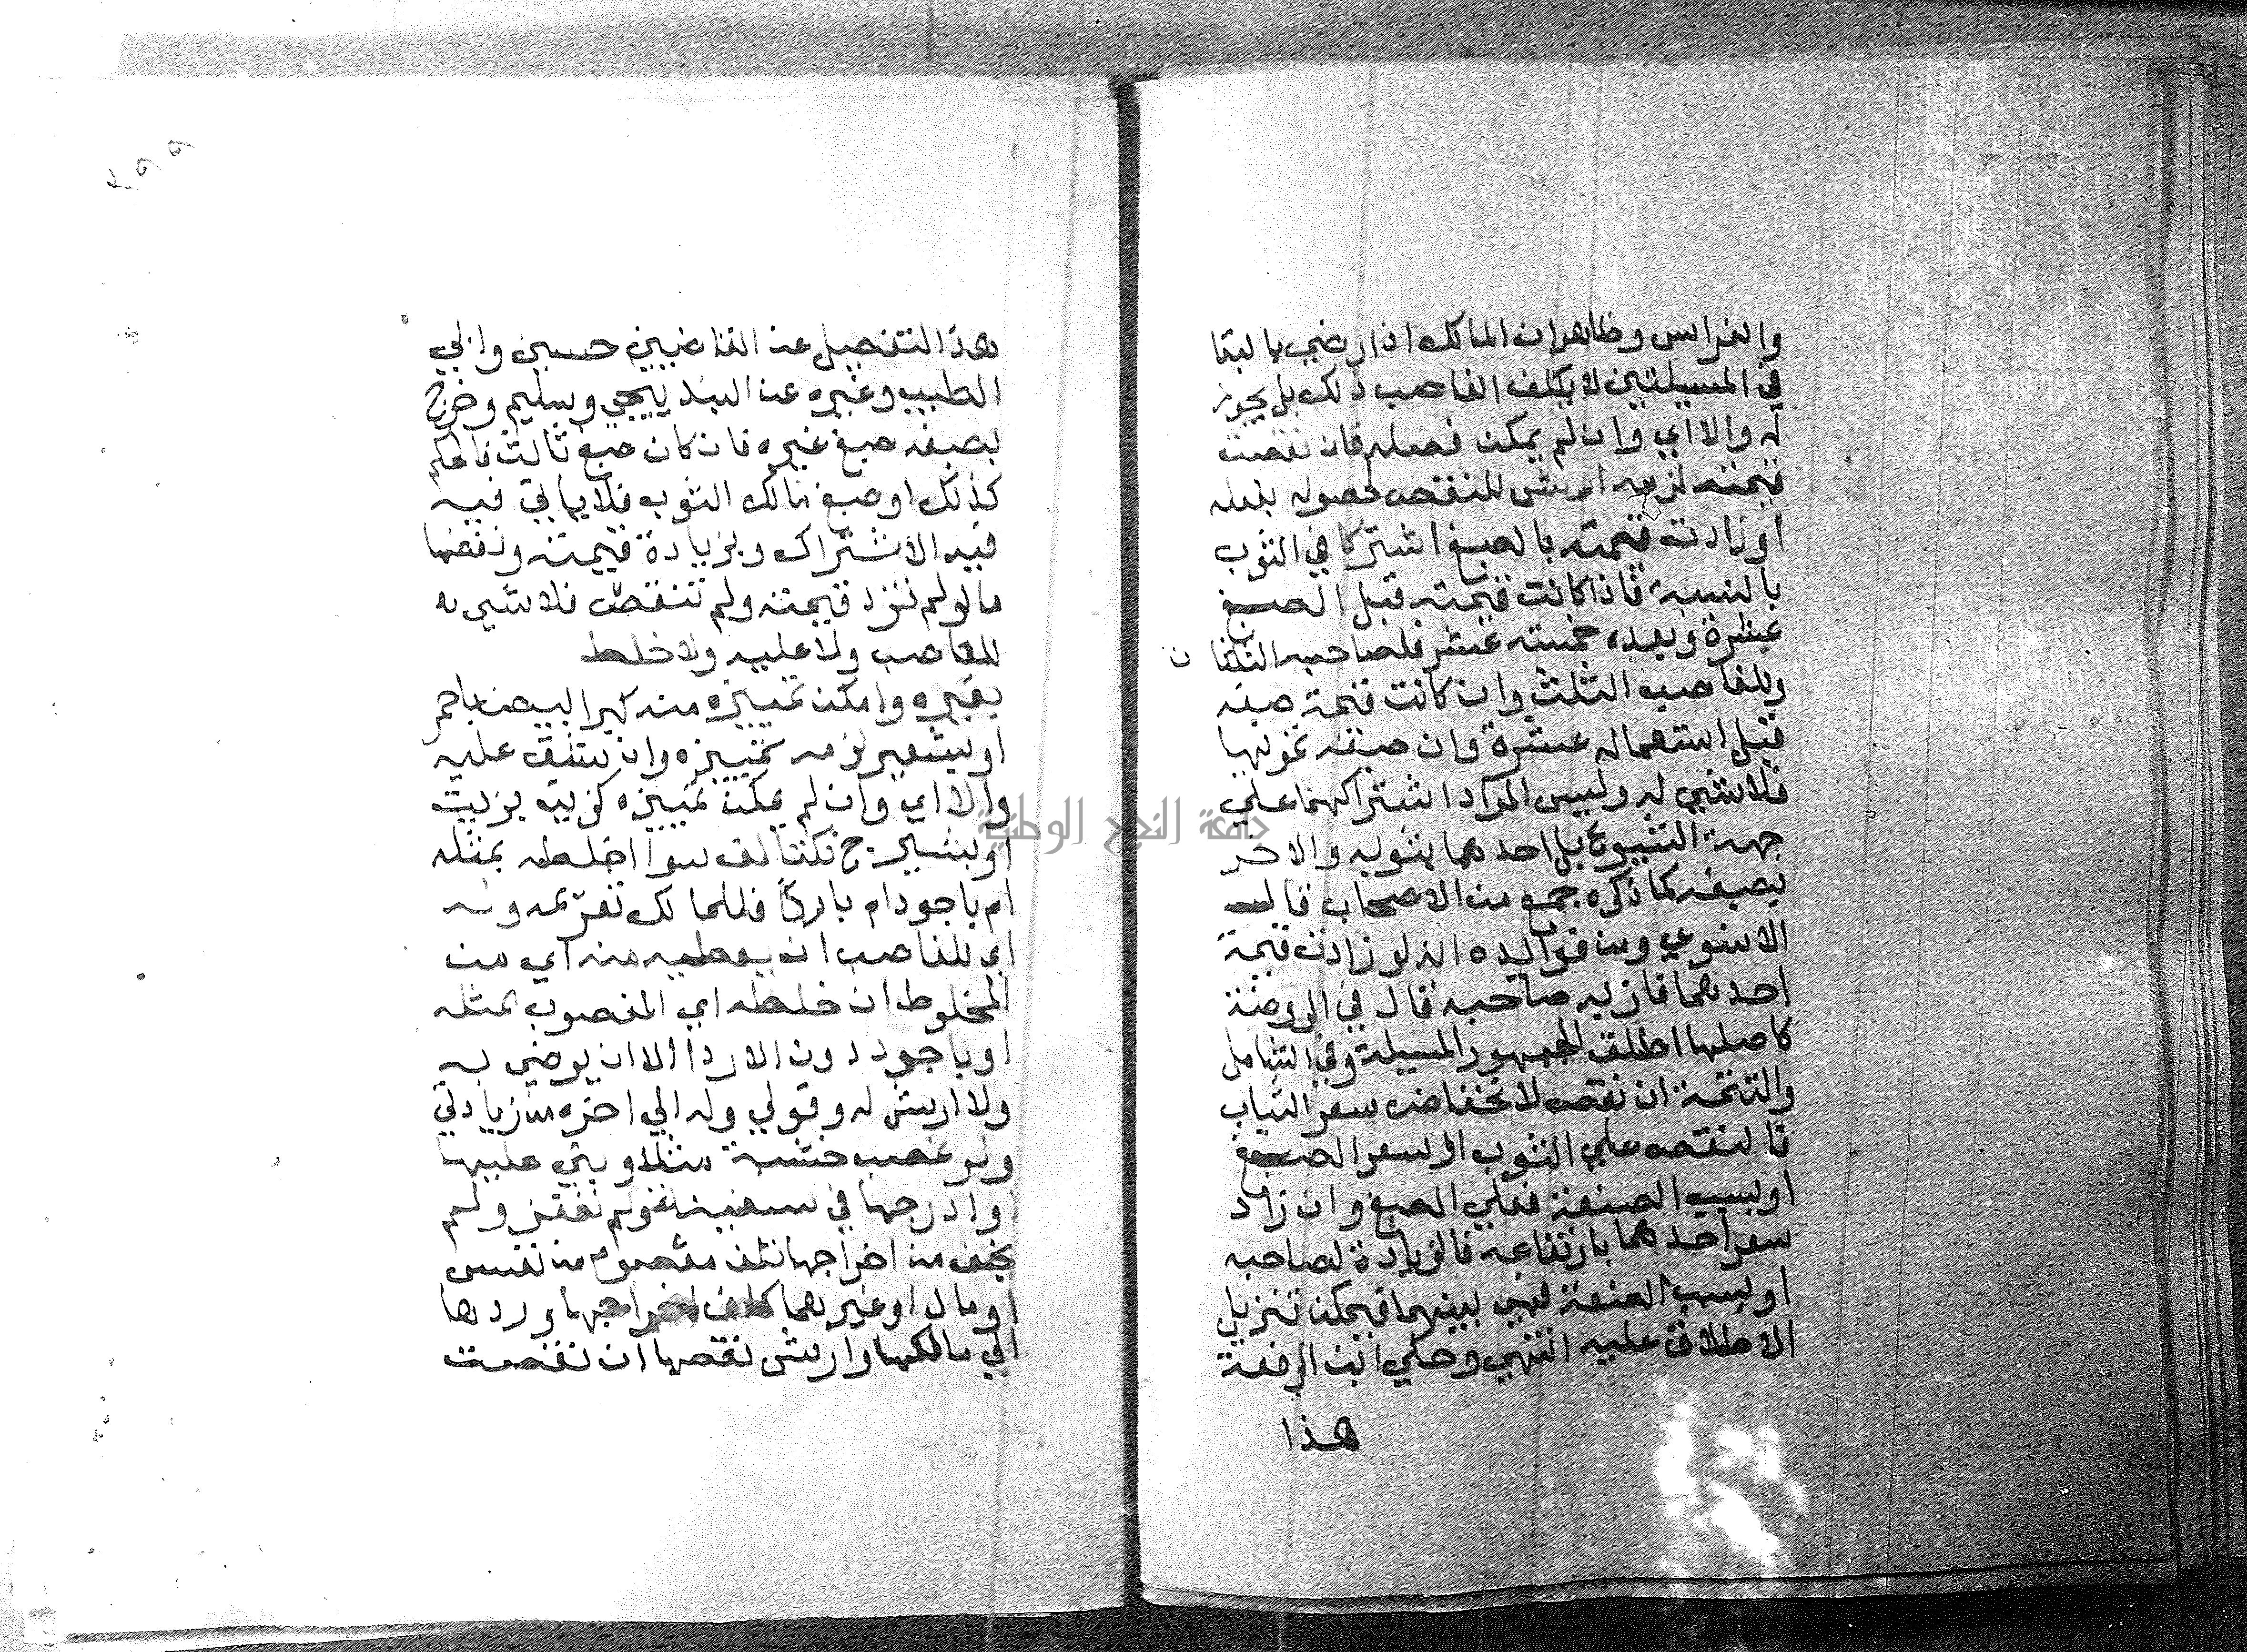 والغراس وظاهر ان المالك اذا رضي بالبقا
في المسيلتين لا يكلف الغاصب ذلك بل يجوز
له والا اي وان لم يمكن فصله فان نقصت
قيمته لزمه ارش للنقص لحصوله بفعله
او زادت قيمته بالصبغ اشتركا في الثوب
بالنسبة فاذا كانت قيمته قبل الصبغ
عشرة وبعده خمسة عشر فلصاحبه الثلثان
وللغاصب الثلث وان كانت قيمة صبغه
قبل استعماله عشرة وان صبغه تمويها
فلا شي له وليس المراد اشتراكهما علي
جهة الشيوع بل احدهما بثوبه والاخر
بصبغه كما ذكره جمع من الاصحاب قال
الاسنوي ومن فوايده انه لو زادت قيمة
احدهما فاز به صاحبه قال في الروضة
كاصلها اطلق الجمهور المسيلة وفي الشامل
والتتمة ان نقص لانخفاض سعر الثياب
فالنقص علي الثوب او سعر الصبغ
او بسبب الصنعة فعلي الصبغ وان زاد
سعر احدهما بارتفاعه فالزيادة لصاحبه
او بسبب الصنعة فهي بينهما فيمكن تنزيل
الاطلاق عليه انتهي وحكي ابن الرفعة
هذا
٢٩٩
هذا التفصيل عن القاضيين حسين وابي
الطيب وغيره عن البندنيجي وسليم وخرج
بصبغه صبغ غيره فان كان صبغ ثالث فالحكم
كذلك او صبغ مالك الثوب فلا ياتي فيه
فيه الاشتراك وبزيادة قيمته ونقصها
ما لو لم تزد قيمته ولم تنقص فلا شي له
للغاصب ولا عليه ولا خلط
بغيره وامكن تمييزه منه كبر ابيض باحمر
او بشعير لزمه تمييزه وان شق عليه
والا اي وان لم يمكن تمييزه كزيت بزيت
او بشيرج فكتالف سوا اخلطه بمثله
ام باجود ام باردا فللمالك تغريمه وله
اي للغاصب ان يعطيه منه اي من
المخلوط ان خلطه اي المغصوب بمثله
او باجود دون الاردا الا ان يرضي به
ولا ارش له وقولي وله الي اخره من زيادتي
ولو غصب خشبة مثلا وبني عليها
او ادرجها في سفينة ولم تعفن ولم
يخف من اخراجها تلف معصوم من نفس
او مال او غيرهما كلف اخراجها وردها
الي مالكها وارش نقصها ان نقصت
جامعة النجاح الوطنية